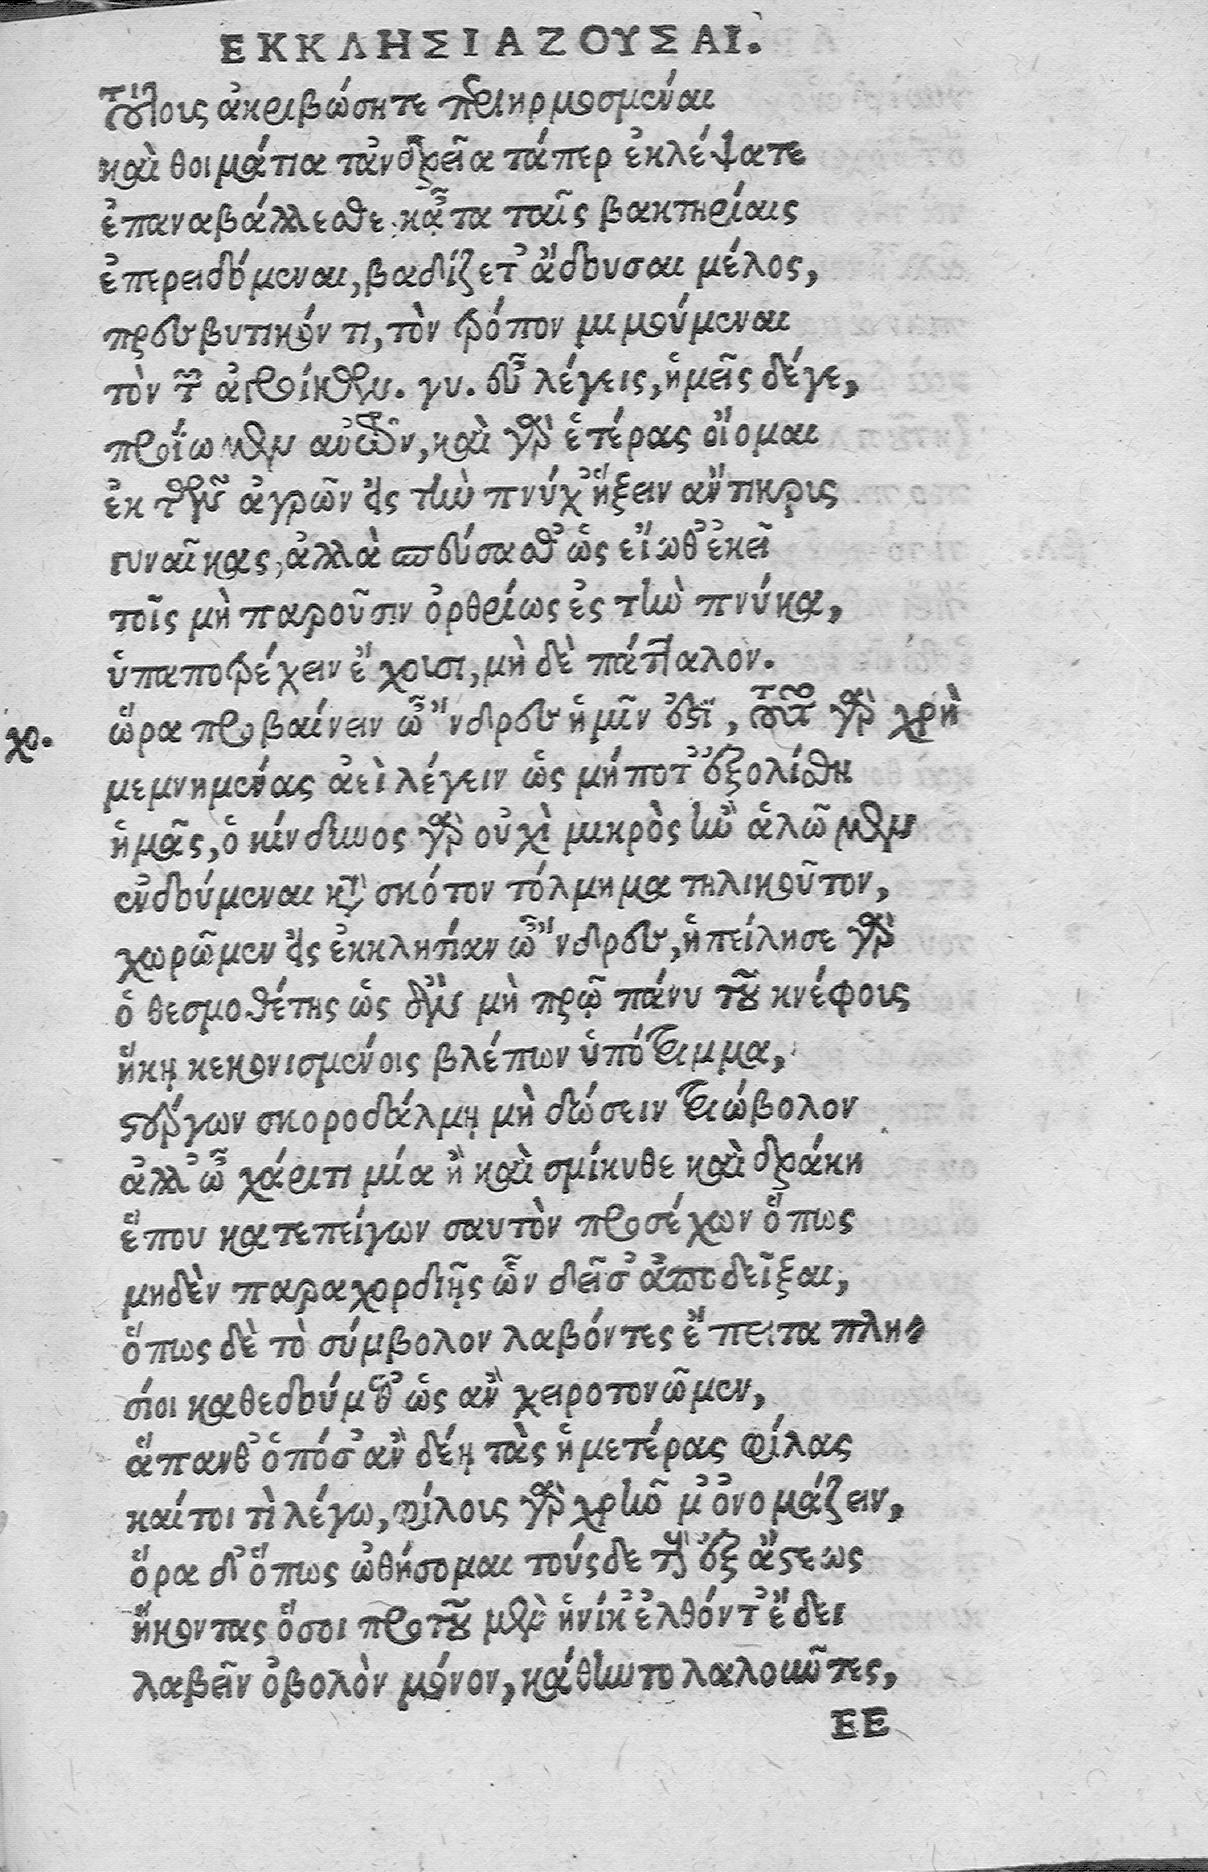 ΕΚΚΛΗΣΙΑΖΟΥΣΑΙ.
τούτοις ἀκριβώσητε περιηρμοσμέναι
καὶ θοιμάτια τἀνδρεῖα τάπερ ἐκλέψατε
ἐπαναβάλλεσθε κᾆτα ταῖς βακτηρίαις
ἐπερειδόμεναι, βαδίζετ᾽ ᾄδουσαι μέλος,
πρεσβυτικόν τι, τὸν τρόπον μιμούμεναι
τὸν τῶν ἀγροίκων. γυ. εὖ λέγεις, ἡμεῖς δέγε,
προΐωμεν αὐτῶν, καὶ γὰρ ἑτέρας οἴομαι
ἐκ τῶν ἀγρῶν ἐς τὴν πνύχ᾽ ἥξειν ἄντικρις
γυναῖκας, ἀλλὰ σπεύσαθ᾽ ὡς εἴωθ᾽ ἐκεῖ
τοῖς μὴ παροῦσιν ὀρθρίως ἐς τὴν πνύκα,
ὑπαποτρέχειν ἔχοισι, μὴ δὲ πάτταλον.
χο. ὥρα προβαίνειν ὦ ᾽νδρες ἡμῖν ἐστὶ, τοῦτο γὰρ χρὴ
μεμνημένας ἀεὶ λέγειν ὡς μήποτ᾽ ἐξολίσθῃ
ἡμᾶς, ὁ κίνδυνος γὰρ οὐχὶ μικρὸς ἢν ἁλῶμεν
ἐνδούμεναι κατὰ σκότον τόλμημα τηλικοῦτον,
χωρῶμεν εἰς ἐκκλησίαν ὦ ᾽νδρες, ἠπείλησε γὰρ
ὁ θεσμοθέτης ὡς ἂν μὴ πρῲ πάνυ τοῦ κνέφοις
ἥκῃ κεκονισμένοις βλέπων ὑπότριμμα,
στέργων σκοροδάλμῃ μὴ δώσειν τριώβολον
ἀλλ᾽ ὦ χάριτι μία ἢ καὶ σμίκυθε καὶ δράκη
ἕπου κατεπείγων σαυτὸν προσέχων ὅπως
μηδὲν παραχορδιῇς ὧν δεῖσ᾽ ἀποδεῖξαι,
ὅπως δὲ τὸ σύμβολον λαβόντες ἔπειτα πλη-
σίοι καθεδούμεθ᾽ ὡς ἂν χειροτονῶμεν,
ἅπανθ᾽ ὁπόσ᾽ ἂν δέῃ τὰς ἡμετέρας φίλας
καίτοι τὶ λέγω, φίλους γὰρ χρῆν μ᾽ ὀνομάζειν,
ὅρα δ᾽ ὅπως ὠθήσομαι τούςδε τοὺς ἐξ ἄστεως
ἥκοντας ὅσοι προτοῦ μὲν ἡνίκ᾽ ἐλθόντ᾽ ἔδει
λαβεῖν ὀβολὸν μόνον, κάθηντο λαλοῦντες,
ΕΕ